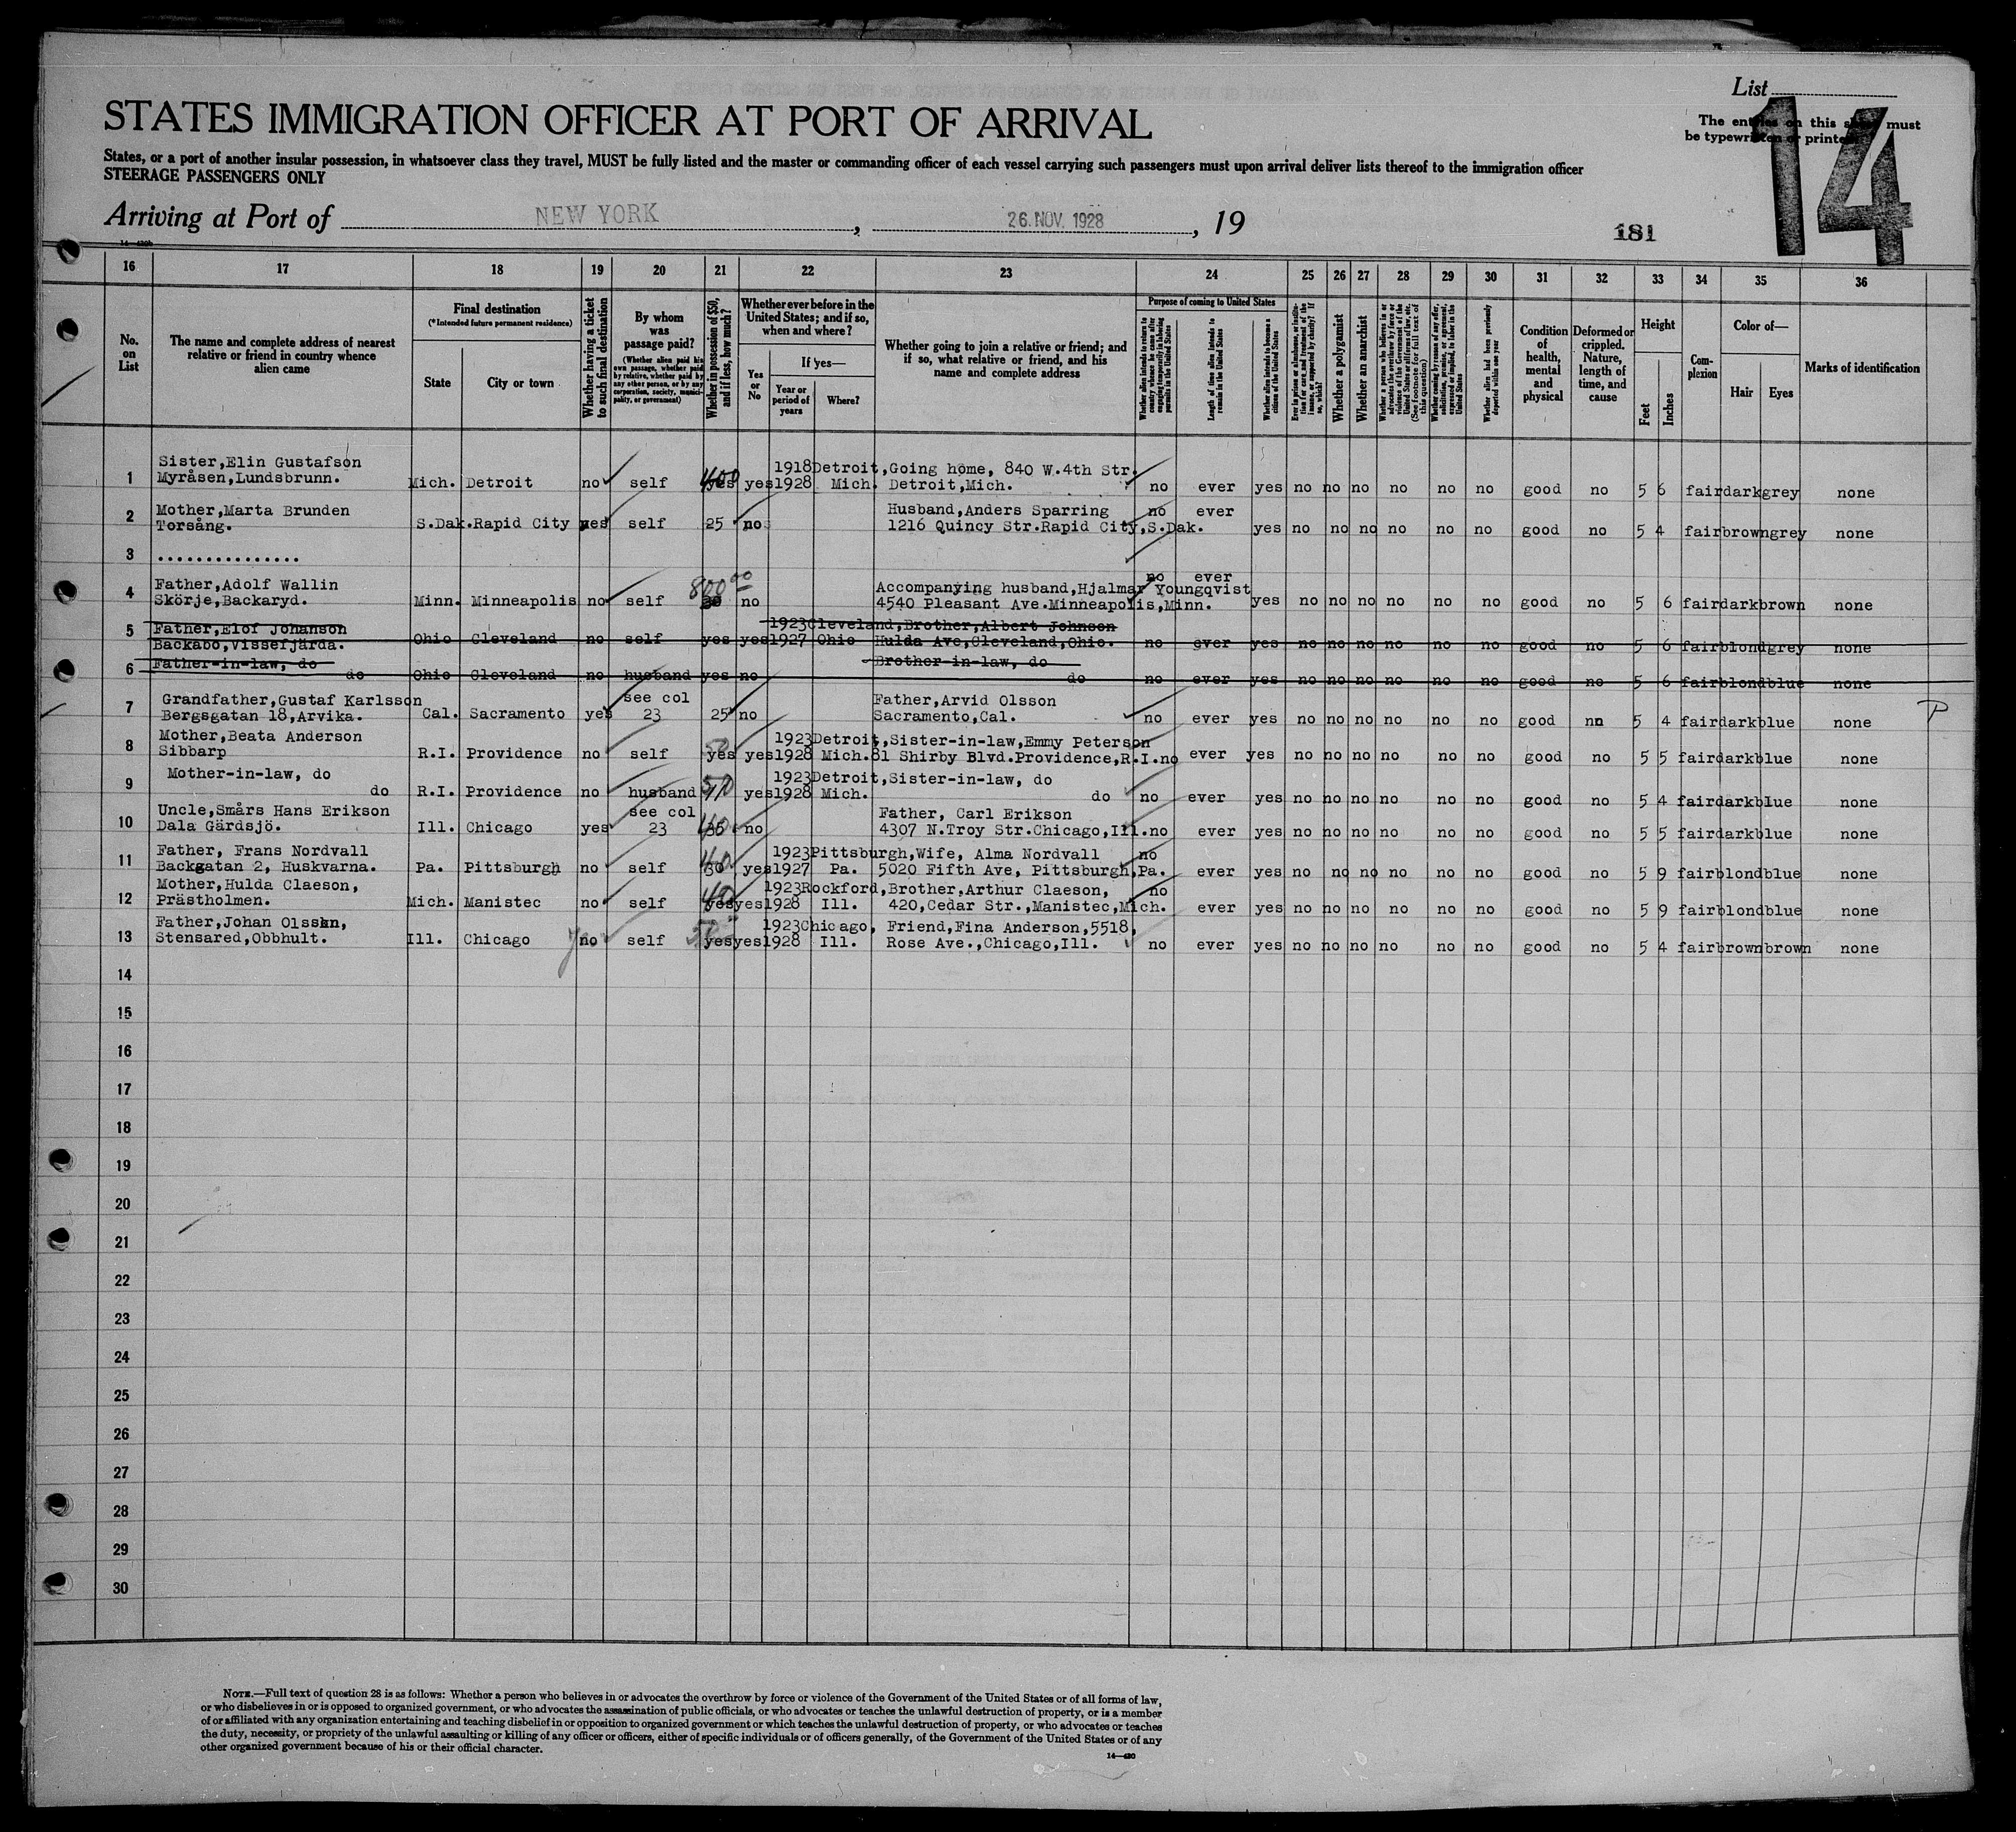 List
14
The entries on this sheet must
be typewritten or printed
STATES IMMIGRATION OFFICER AT PORT OF ARRIVAL
States, or a port of another insular possession, in whatsoever class they travel, MUST be fully listed and the master or commanding officer of each vessel carrying such passengers must upon arrival deliver lists thereof to the immigration officer
STEERAGE PASSENGERS ONLY
Arriving at Port of NEW YORK, 26. NOV. 1928, 19
181
16 17 18 19 20 21 22 23 24 25 26 27 28 29 30 31 32 33 34 35 36
No. on List
The name and complete address of nearest relative or friend in country whence alien came
Final destination
(*Intended future permanent residence)
State
City or town
Whether having a ticket to such final destination
By whom was passage paid?
(Whether alien paid his own passage, whether paid by relative, whether paid by any other person, or by any corporation, society, municipality, or government)
Whether in possession of $50, and if less, how much?
Whether ever before in the United States; and if so, when and where?
Yes or No
If yes—
Year or period of years
Where?
Whether going to join a relative or friend; and if so, what relative or friend, and his name and complete address
Purpose of coming to United States
Whether alien intends to return to country whence he came after engaging temporarily in laboring pursuits in the United States
Length of time alien intends to remain in the United States
Whether alien intends to become a citizen of the United States
Ever in prison or almshouse, or institution for care and treatment of the insane, or supported by charity? If so, which?
Whether a polygamist
Whether an anarchist
Whether a person who believes in or advocates the overthrow by force or violence of the Government of the United States or all forms of law, etc. (See footnote for full text of this question)
Whether coming by reason of any offer, solicitation, promise, or agreement, expressed or implied, to labor in the United States
Whether alien had been previously deported within one year
Condition of health, mental and physical
Deformed or crippled. Nature, length of time, and cause
Height
Feet
Inches
Complexion
Color of—
Hair
Eyes
Marks of identification
1 Sister,Elin Gustafson 1918 Detroit,Going home, 840 W.4th Str.
Myråsen,Lundsbrunn. Mich. Detroit no self yes 400 yes 1928 Mich. Detroit,Mich. no ever yes no no no no no no good no 5 6 fair dark grey none
2 Mother,Marta Brunden Husband,Anders Sparring no ever
Torsång. S.Dak. Rapid City yes self 25 no 1216 Quincy Str.Rapid City,S.Dak. yes no no no no no no good no 5 4 fair brown grey none
3 ...............
4 Father,Adolf Wallin 800 00 Accompanying husband,Hjalmar Youngqvist no ever
Skörje,Backaryd. Minn. Minneapolis no self no 4540 Pleasant Ave.Minneapolis,Minn. yes no no no no no no good no 5 6 fair dark brown none
5 Father,Elof Johanson 1923 Cleveland,Brother,Albert Johnson
Backabo,Vissefjärda. Ohio Cleveland no self yes yes 1927 Ohio Hulda Ave,Cleveland,Ohio. no ever yes no no no no no no good no 5 6 fair blond grey none
6 Father-in-law, do Brother-in-law, do
do Ohio Cleveland no husband yes no do no ever yes no no no no no no good no 5 6 fair blond blue none
7 Grandfather,Gustaf Karlsson see col Father,Arvid Olsson
Bergsgatan 18,Arvika. Cal. Sacramento yes 23 25 no Sacramento,Cal. no ever yes no no no no no no good nn 5 4 fair dark blue none P
8 Mother,Beata Anderson 1923 Detroit,Sister-in-law,Emmy Peterson
Sibbarp R.I. Providence no self yes 50 yes 1928 Mich. 81 Shirby Blvd.Providence,R.I. no ever yes no no no no no no good no 5 5 fair dark blue none
9 Mother-in-law, do 1923 Detroit,Sister-in-law, do
do R.I. Providence no husband yes 1928 Mich. do no ever yes no no no no no no good no 5 4 fair dark blue none
10 Uncle,Smårs Hans Erikson see col Father, Carl Erikson
Dala Gärdsjö. Ill. Chicago yes 23 no 4307 N.Troy Str.Chicago,Ill. no ever yes no no no no no no good no 5 5 fair dark blue none
11 Father, Frans Nordvall 1923 Pittsburgh,Wife, Alma Nordvall no
Backgatan 2, Huskvarna. Pa. Pittsburgh no self yes 1927 Pa. 5020 Fifth Ave, Pittsburgh,Pa. ever yes no no no no no no good no 5 9 fair blond blue none
12 Mother,Hulda Claeson, 1923 Rockford,Brother,Arthur Claeson, no
Prästholmen. Mich. Manistec no self yes yes 1928 Ill. 420,Cedar Str.,Manistec,Mich. ever yes no no no no no no good no 5 9 fair blond blue none
13 Father,Johan Olssen, 1923 Chicago, Friend,Fina Anderson,5518,
Stensared,Obbhult. Ill. Chicago no self yes yes 1928 Ill. Rose Ave.,Chicago,Ill. no ever yes no no no no no no good no 5 4 fair brown brown none
14
15
16
17
18
19
20
21
22
23
24
25
26
27
28
29
30
NOTE.—Full text of question 28 is as follows: Whether a person who believes in or advocates the overthrow by force or violence of the Government of the United States or of all forms of law,
or who disbelieves in or is opposed to organized government, or who advocates the assassination of public officials, or who advocates or teaches the unlawful destruction of property, or is a member
of or affiliated with any organization entertaining and teaching disbelief in or opposition to organized government or which teaches the unlawful destruction of property, or who advocates or teaches
the duty, necessity, or propriety of the unlawful assaulting or killing of any officer or officers, either of specific individuals or of officers generally, of the Government of the United States or of any
other organized government because of his or their official character.
14—430